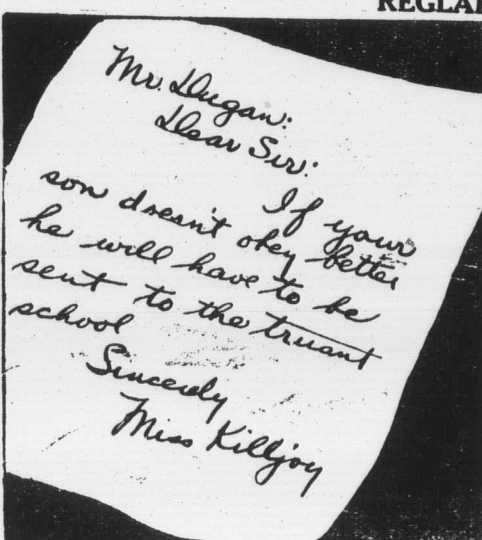 REGLAR
Mr. Dugan:
Dear Sir:
If your
son doesn't obey better
he will have to be
sent to the truant
school
Sincerely
Miss Killjoy